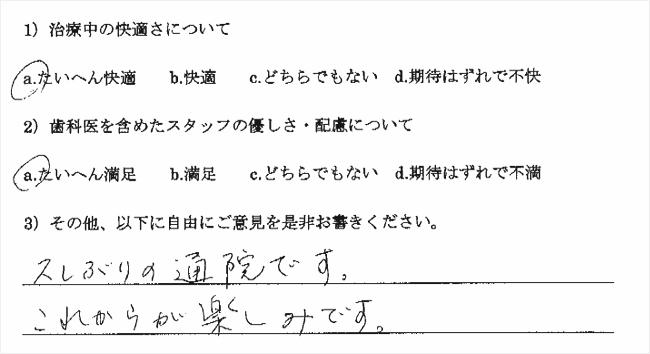 1）治療中の快適さについて
a.たいへん快適　b.快適　c.どちらでもない　d.期待はずれで不快
2）歯科医を含めたスタッフの優しさ・配慮について
a.たいへん満足　b.満足　c.どちらでもない　d.期待はずれで不満
3）その他、以下に自由にご意見を是非お書きください。
久しぶりの通院です。
これからが楽しみです。